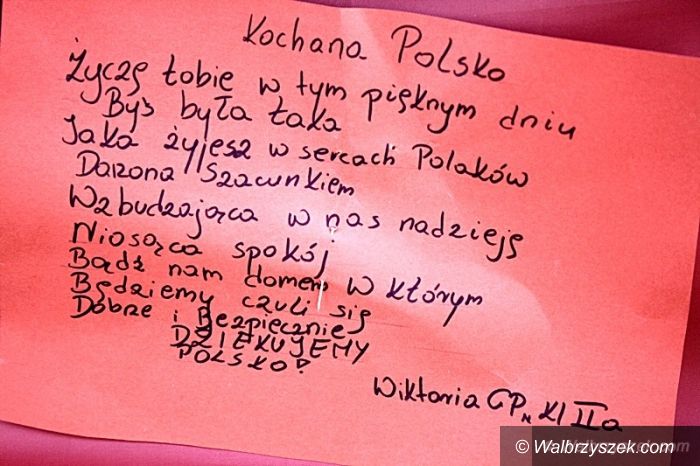 Kochana Polsko
Życzę tobie w tym pięknym dniu
Byś była taka
Jaka żyjesz w sercach Polaków
Darzona Szacunkiem
Wzbudzająca w nas nadzieję
Niosąca spokój
Bądź nam domem w którym
Będziemy czuli się
Dobrze i Bezpiecznie
DZIĘKUJEMY
POLSKO!
Wiktoria GPn Kl IIa
© Walbrzyszek.com